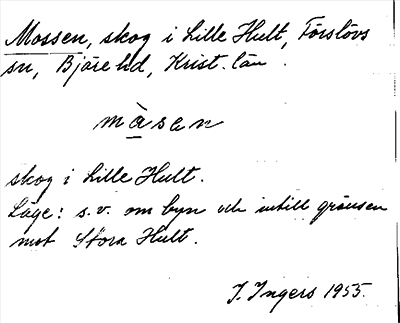 Mossen, skog i Lille Hult, Förslövs
sn, Bjäre hd, Krist. län.
måsen
skog i Lille Hult.
Läge: s.v. om byn och intill gränsen
mot Stora Hult.
I. Ingers 1955.